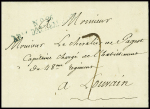 Monsieur
Monsieur Le Chevalier de Paguet
Capitaine chargé de l'habillement
du 48me Régiment
à Louvain